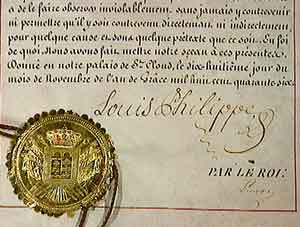 à le faire observer inviolablement, sans jamais y contrevenir
ni permettre qu'il y soit contrevenu directement, ni indirectement
pour quelque cause et sous quelque prétexte que ce soit. En foi
de quoi Nous avons fait mettre notre sceau à ces présentes.
Donné en notre palais de St Cloud, le dix-huitième jour du
mois de Novembre de l'an de Grâce mil huit cent quarante-six.
Louis Philippe
PAR LE ROI: